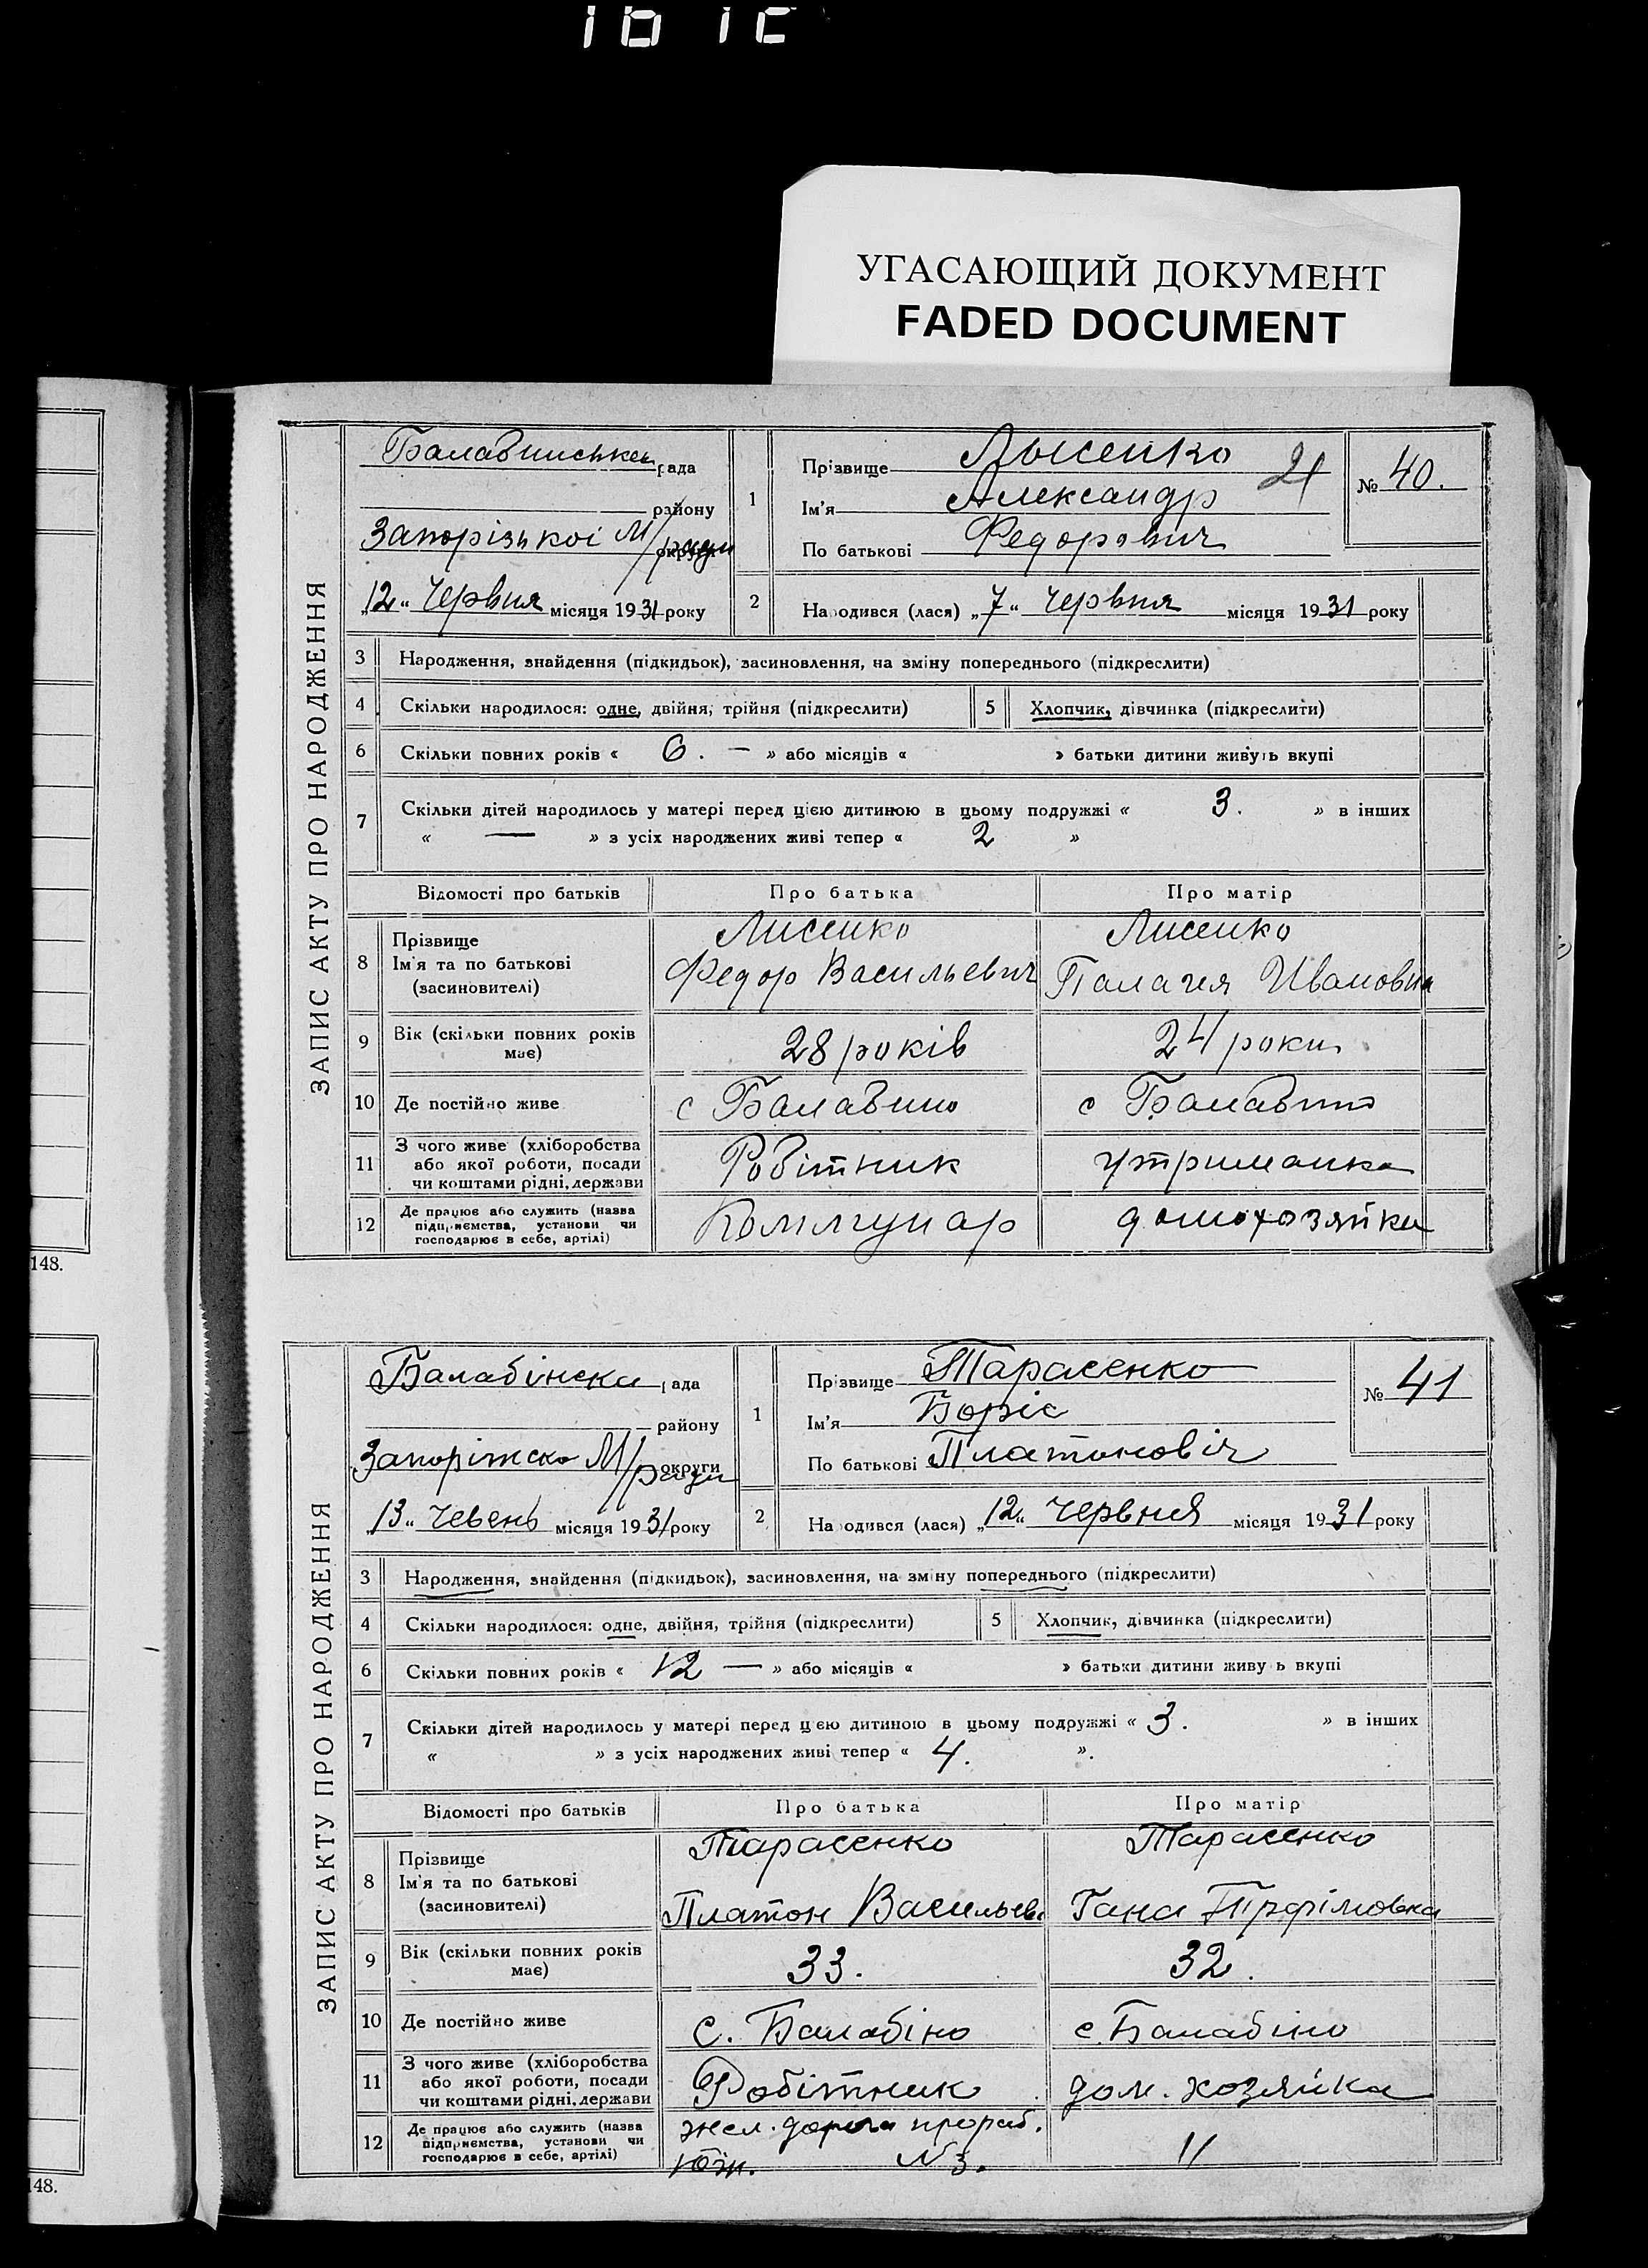 УГАСАЮЩИЙ ДОКУМЕНТ
FADED DOCUMENT
ЗАПИС АКТУ ПРО НАРОДЖЕННЯ
Балабинська рада
району
Запорізькоі М/ради округи
„12“ Червня місяця 1931 року
1
Прізвище Лысенко
Ім'я Александр
По батькові Федорович
21
№ 40.
2 Народився (лася) „7“ червня місяця 1931 року
3 Народження, знайдення (підкидьок), засиновлення, на зміну попереднього (підкреслити)
4 Скільки народилося: одне, двійня, трійня (підкреслити) 5 Хлопчик, дівчинка (підкреслити)
6 Скільки повних років « 6. — » або місяців « » батьки дитини живуть вкупі
7 Скільки дітей народилось у матері перед цією дитиною в цьому подружжі « 3. » в інших
« — » з усіх народжених живі тепер « 2 »
Відомості про батьків Про батька Про матір
8 Прізвище Лисенко Лисенко
Ім'я та по батькові Федор Васильевич Палагея Ивановна
(засновителі)
9 Вік (скільки повних років має) 28 років 24 роки
10 Де постійно живе с Балабино с Балабино
11 З чого живе (хліборобства
або якої роботи, посади Робітник утриманка
чи коштами рідні, держави
12 Де працює або служить (назва
підприємства, установи чи Коммунар домохозяйка
господарює в себе, артілі)
148.
ЗАПИС АКТУ ПРО НАРОДЖЕННЯ
Балабінска рада
району
Запоріжско М/ради округи
„13“ Чевень місяця 1931 року
1
Прізвище Тарасенко
Ім'я Боріс
По батькові Платоновіч
№ 41
2 Народився (лася) „12“ червня місяця 1931 року
3 Народження, знайдення (підкидьок), засиновлення, на зміну попереднього (підкреслити)
4 Скільки народилося: одне, двійня, трійня (підкреслити) 5 Хлопчик, дівчинка (підкреслити)
6 Скільки повних років « 12 — » або місяців « » батьки дитини живуь вкупі
7 Скільки дітей народилось у матері перед цією дитиною в цьому подружжі « 3. » в інших
« » з усіх народжених живі тепер « 4. ».
Відомості про батьків Про батька Про матір
8 Прізвище Тарасенко Тарасенко
Ім'я та по батькові Платон Васильев Гана
(засиновителі)
9 Вік (скільки повних років має) 33. 32.
10 Де постійно живе с. Балабіно с. Балабіно
11 З чого живе (хліборобства
або якої роботи, посади Робітник дом. хозяйка
чи коштами рідні, держави
12 Де працює або служить (назва жел. дорога прораб.
підприємства, установи чи "
господарює в себе, артілі) Юж. №3.
148.